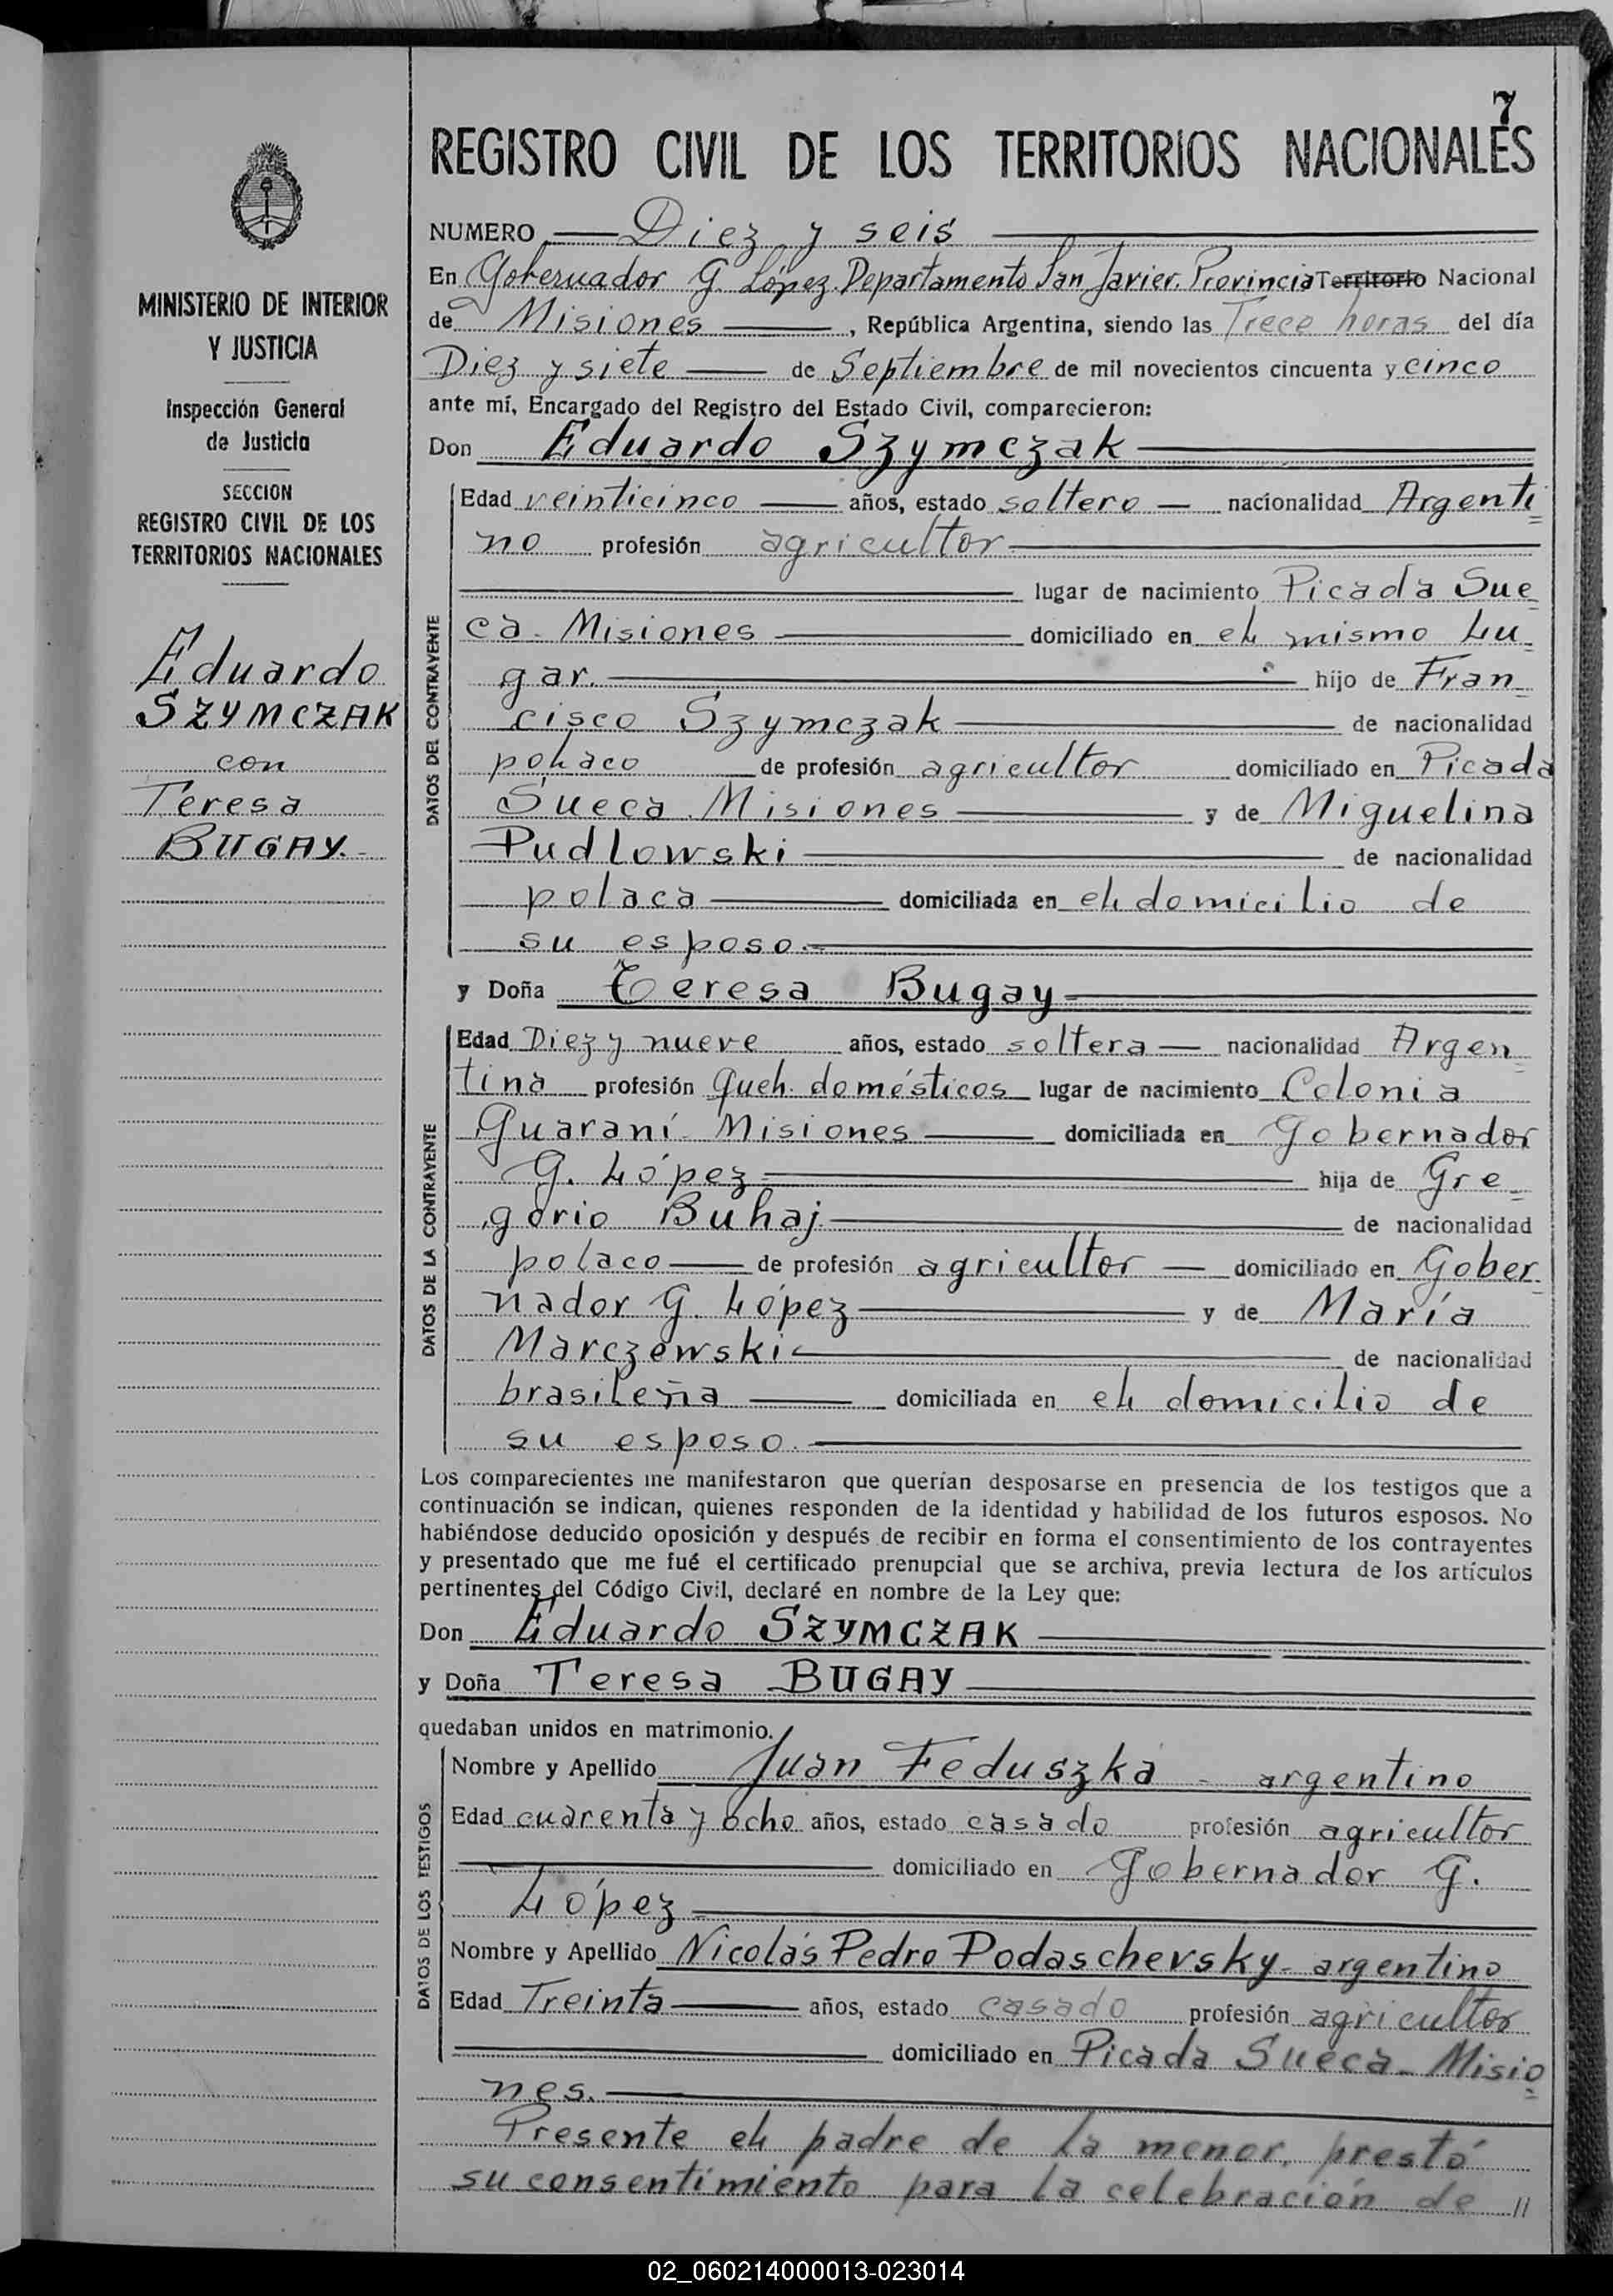 7
REGISTRO CIVIL DE LOS TERRITORIOS NACIONALES
MINISTERIO DE INTERIOR
Y JUSTICIA
Inspección General
de Justicia
SECCION
REGISTRO CIVIL DE LOS
TERRITORIOS NACIONALES
Eduardo
SZYMCZAK
con
Teresa
BUGAY.-
NUMERO Diez y seis
En Gobernador G. López. Departamento San Javier. Provincia Territorio Nacional
de Misiones, República Argentina, siendo las Trece horas del día
Diez y siete de Septiembre de mil novecientos cincuenta y cinco
ante mí, Encargado del Registro del Estado Civil, comparecieron:
Don Eduardo Szymczak
DATOS DEL CONTRAYENTE
Edad veinticinco años, estado soltero nacionalidad Argenti=
no profesión agricultor
lugar de nacimiento Picada Sue
ca - Misiones domiciliado en el mismo Lu
gar. hijo de Fran
cisco Szymczak de nacionalidad
polaco de profesión agricultor domiciliado en Picada
Sueca. Misiones y de Miguelina
Pudlowski de nacionalidad
polaca domiciliada en el domicilio de
su esposo.
y Doña Teresa Bugay
DATOS DE LA CONTRAYENTE
Edad Diez y nueve años, estado soltera nacionalidad Argen=
tina profesión Queh. domésticos lugar de nacimiento Colonia
Guaraní - Misiones domiciliada en Gobernador
G. López hija de Gre=
gorio Buhaj de nacionalidad
polaco de profesión agricultor domiciliado en Gober=
nador G. López y de María
Marczewski de nacionalidad
brasileña domiciliada en el domicilio de
su esposo.
Los comparecientes me manifestaron que querían desposarse en presencia de los testigos que a
continuación se indican, quienes responden de la identidad y habilidad de los futuros esposos. No
habiéndose deducido oposición y después de recibir en forma el consentimiento de los contrayentes
y presentado que me fué el certificado prenupcial que se archiva, previa lectura de los artículos
pertinentes del Código Civil, declaré en nombre de la Ley que:
Don Eduardo SZYMCZAK
y Doña Teresa BUGAY
quedaban unidos en matrimonio.
DATOS DE LOS TESTIGOS
Nombre y Apellido Juan Feduszka - argentino
Edad cuarenta y ocho años, estado casado profesión agricultor
domiciliado en Gobernador G.
López
Nombre y Apellido Nicolás Pedro Podaschevsky - argentino
Edad Treinta años, estado casado profesión agricultor
domiciliado en Picada Sueca - Misio=
nes.
Presente el padre de la menor, prestó
su consentimiento para la celebración de //
02_060214000013-023014